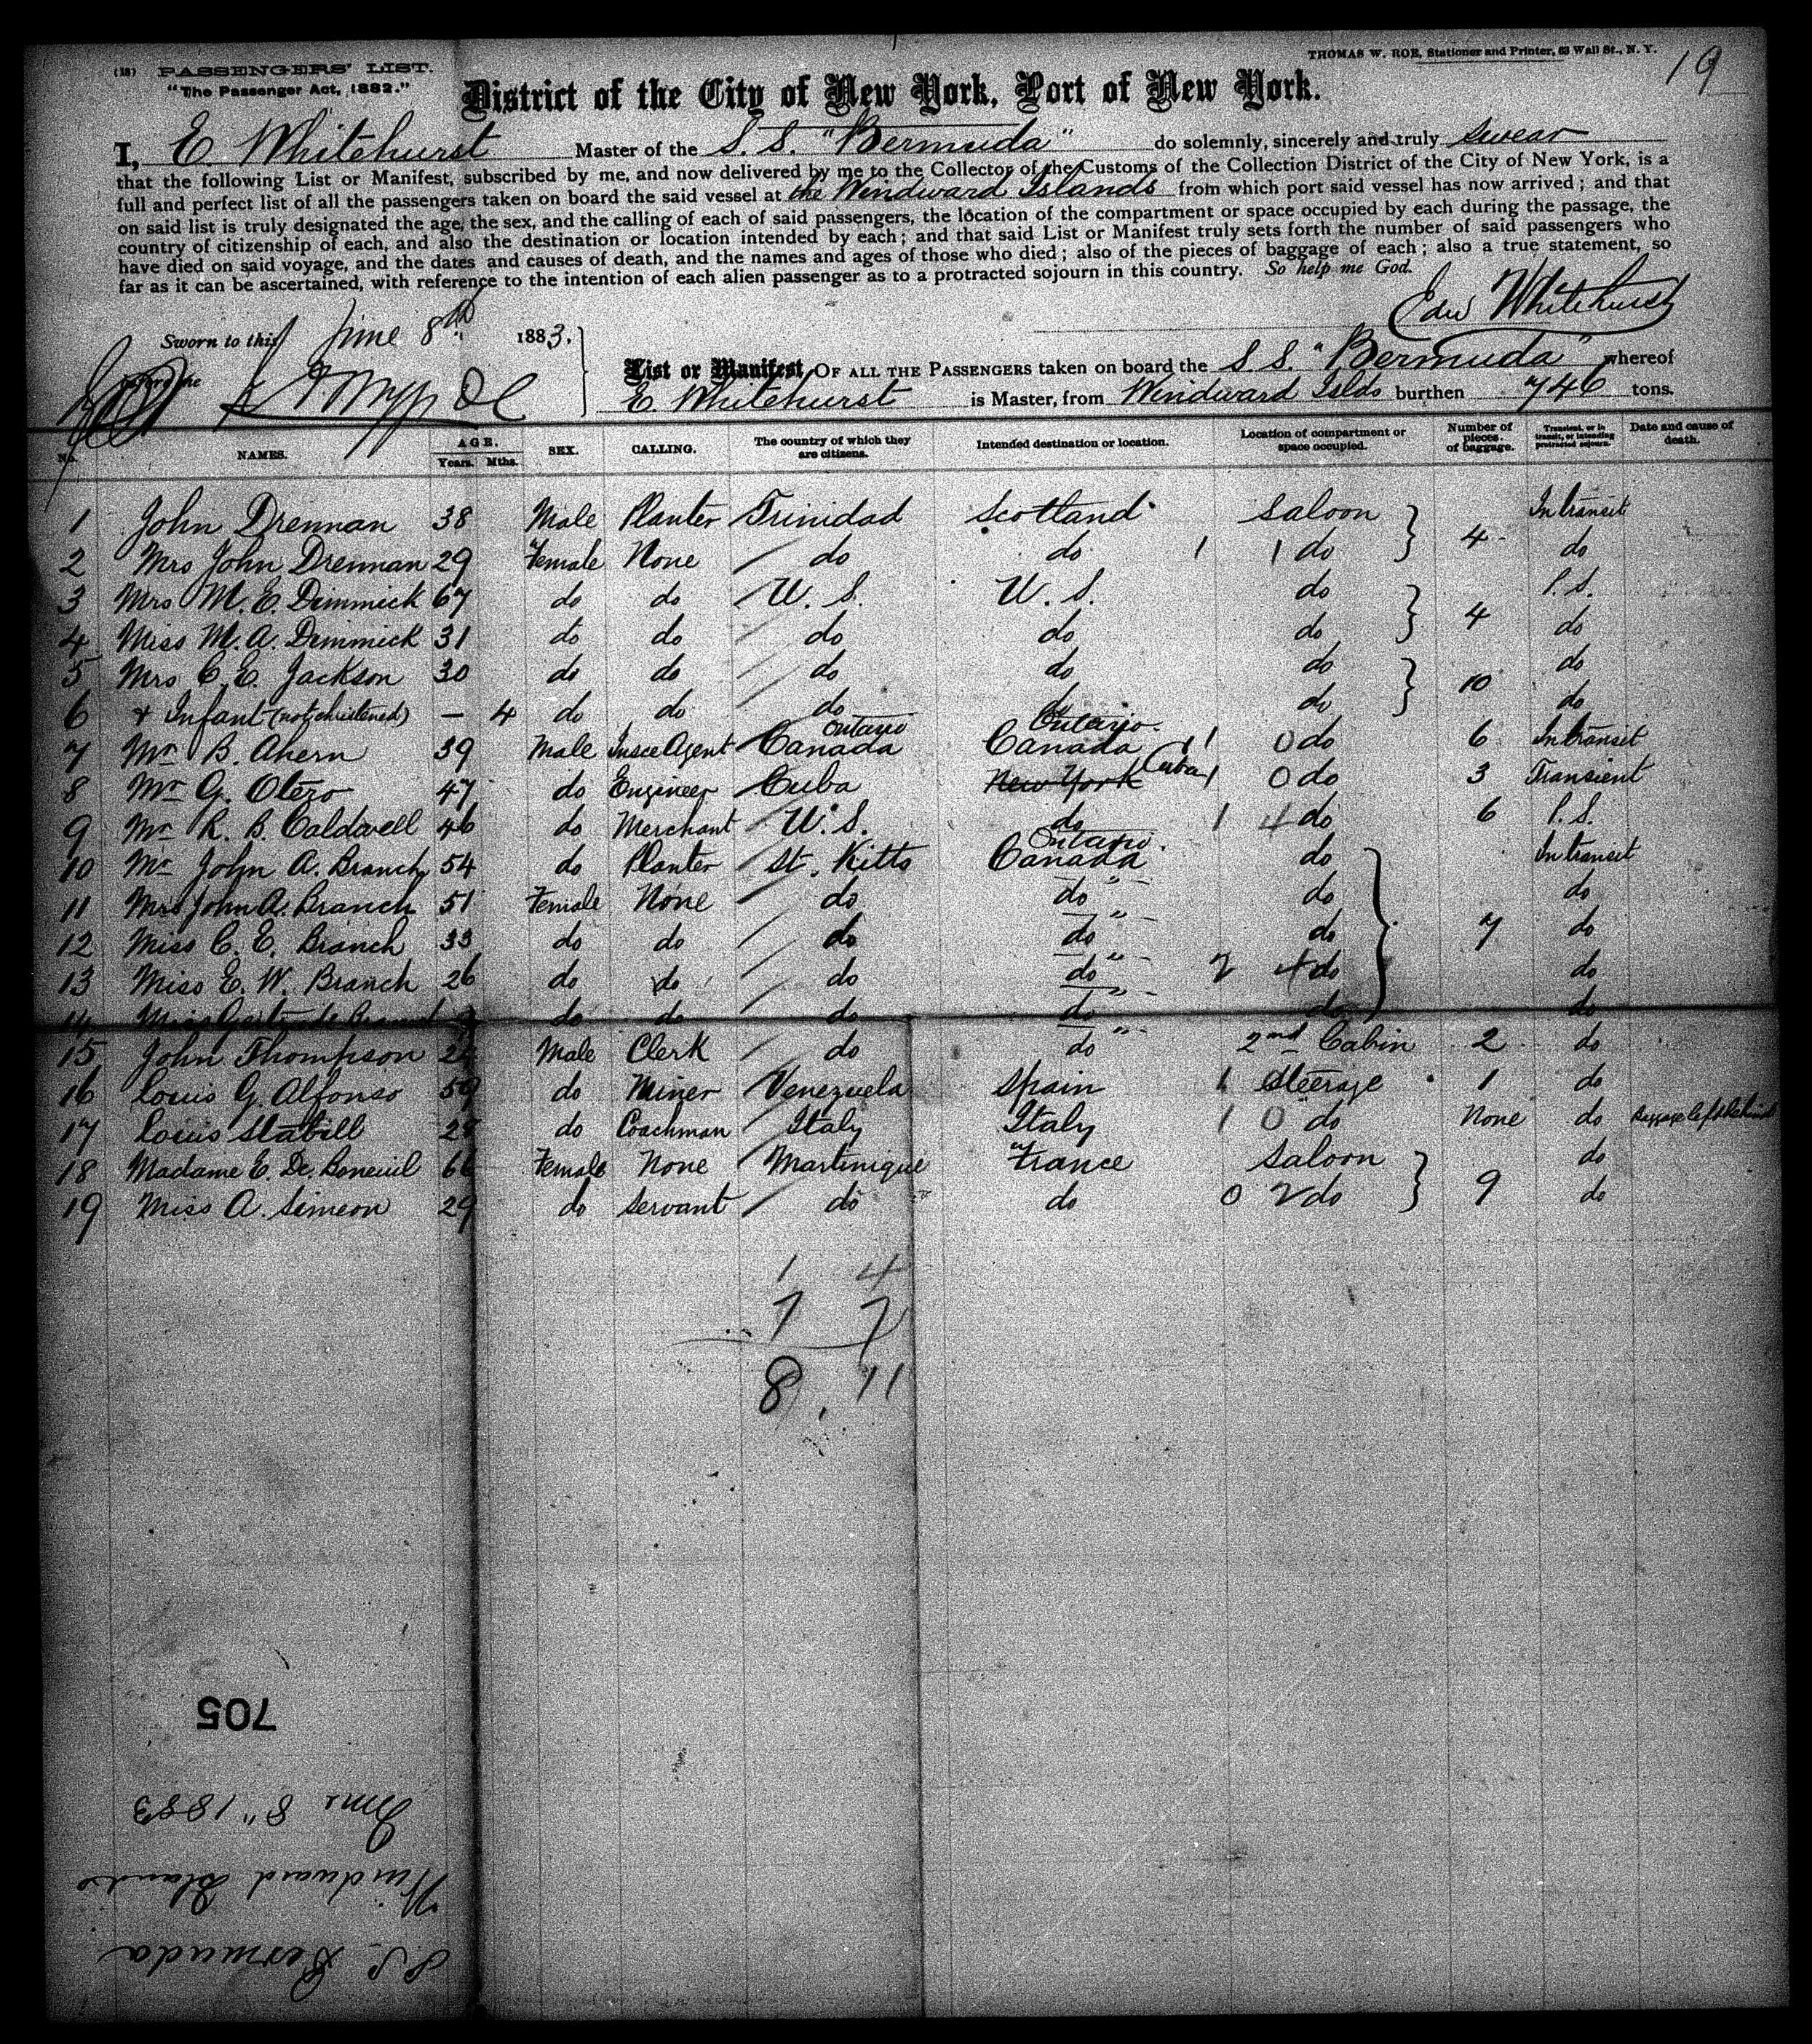 THOMAS W. ROE, Stationer and Printer, 63 Wall St., N. Y.
19
(18) PASSENGERS' LIST.
"The Passenger Act, 1882."
District of the City of New York, Port of New York.
I, E. Whitehurst Master of the S. S. "Bermuda" do solemnly, sincerely and truly swear
that the following List or Manifest, subscribed by me, and now delivered by me to the Collector of the Customs of the Collection District of the City of New York, is a
full and perfect list of all the passengers taken on board the said vessel at the Windward Islands from which port said vessel has now arrived; and that
on said list is truly designated the age, the sex, and the calling of each of said passengers, the location of the compartment or space occupied by each during the passage, the
country of citizenship of each, and also the destination or location intended by each; and that said List or Manifest truly sets forth the number of said passengers who
have died on said voyage, and the dates and causes of death, and the names and ages of those who died; also of the pieces of baggage of each; also a true statement, so
far as it can be ascertained, with reference to the intention of each alien passenger as to a protracted sojourn in this country. So help me God.
Edw Whitehurst
Sworn to this June 8th 1883.
before me
List or Manifest OF ALL THE PASSENGERS taken on board the S. S. "Bermuda" whereof
E. Whitehurst is Master, from Windward Islds burthen 746 tons.
No. NAMES. AGE. Years. Mths. SEX. CALLING. The country of which they are citizens. Intended destination or location. Location of compartment or space occupied. Number of pieces of baggage. Transient, or in transit, or intending protracted sojourn. Date and cause of death.
1 John Drennan 38 Male Planter Trinidad Scotland Saloon In transit
2 Mrs John Drennan 29 Female None do do 1 1 do 4 do
3 Mrs M. E. Dimmick 67 do do U. S. U. S. do P. S.
4 Miss M. A. Dimmick 31 do do do do do 4 do
5 Mrs C. E. Jackson 30 do do do do do do
6 & Infant (not christened) — 4 do do do do do 10 do
7 Mr B. Ahern 39 Male Insce Agent Canada Ontario Canada Ontario 1 1 0 do 6 In transit
8 Mr G. Otero 47 do Engineer Cuba New York Cuba 1 0 do 3 Transient
9 Mr R. B. Caldwell 46 do Merchant U. S. do 1 4 do 6 P. S.
10 Mr John A. Branch 54 do Planter St. Kitts Canada Ontario do In transit
11 Mrs John A. Branch 51 Female None do do " do do
12 Miss C. E. Branch 33 do do do do " do 7 do
13 Miss E. W. Branch 26 do do do do " 2 4 do do
14 Miss do do do do " do do
15 John Thompson 24 Male Clerk do do " 2nd Cabin 2 do
16 Louis G. Alfonso 59 do Miner Venezuela Spain 1 Steerage 1 do
17 Louis Stabill do Coachman Italy Italy 1 0 do None do Baggage left behind
18 Madame E. De. Boneuil 66 Female None Martinique France Saloon do
19 Miss A. Simeon 29 do Servant do do 0 2 do 9 do
1 4
7 7
8 11
705
June 8" 1883
Windward Islands
S.S. Bermuda